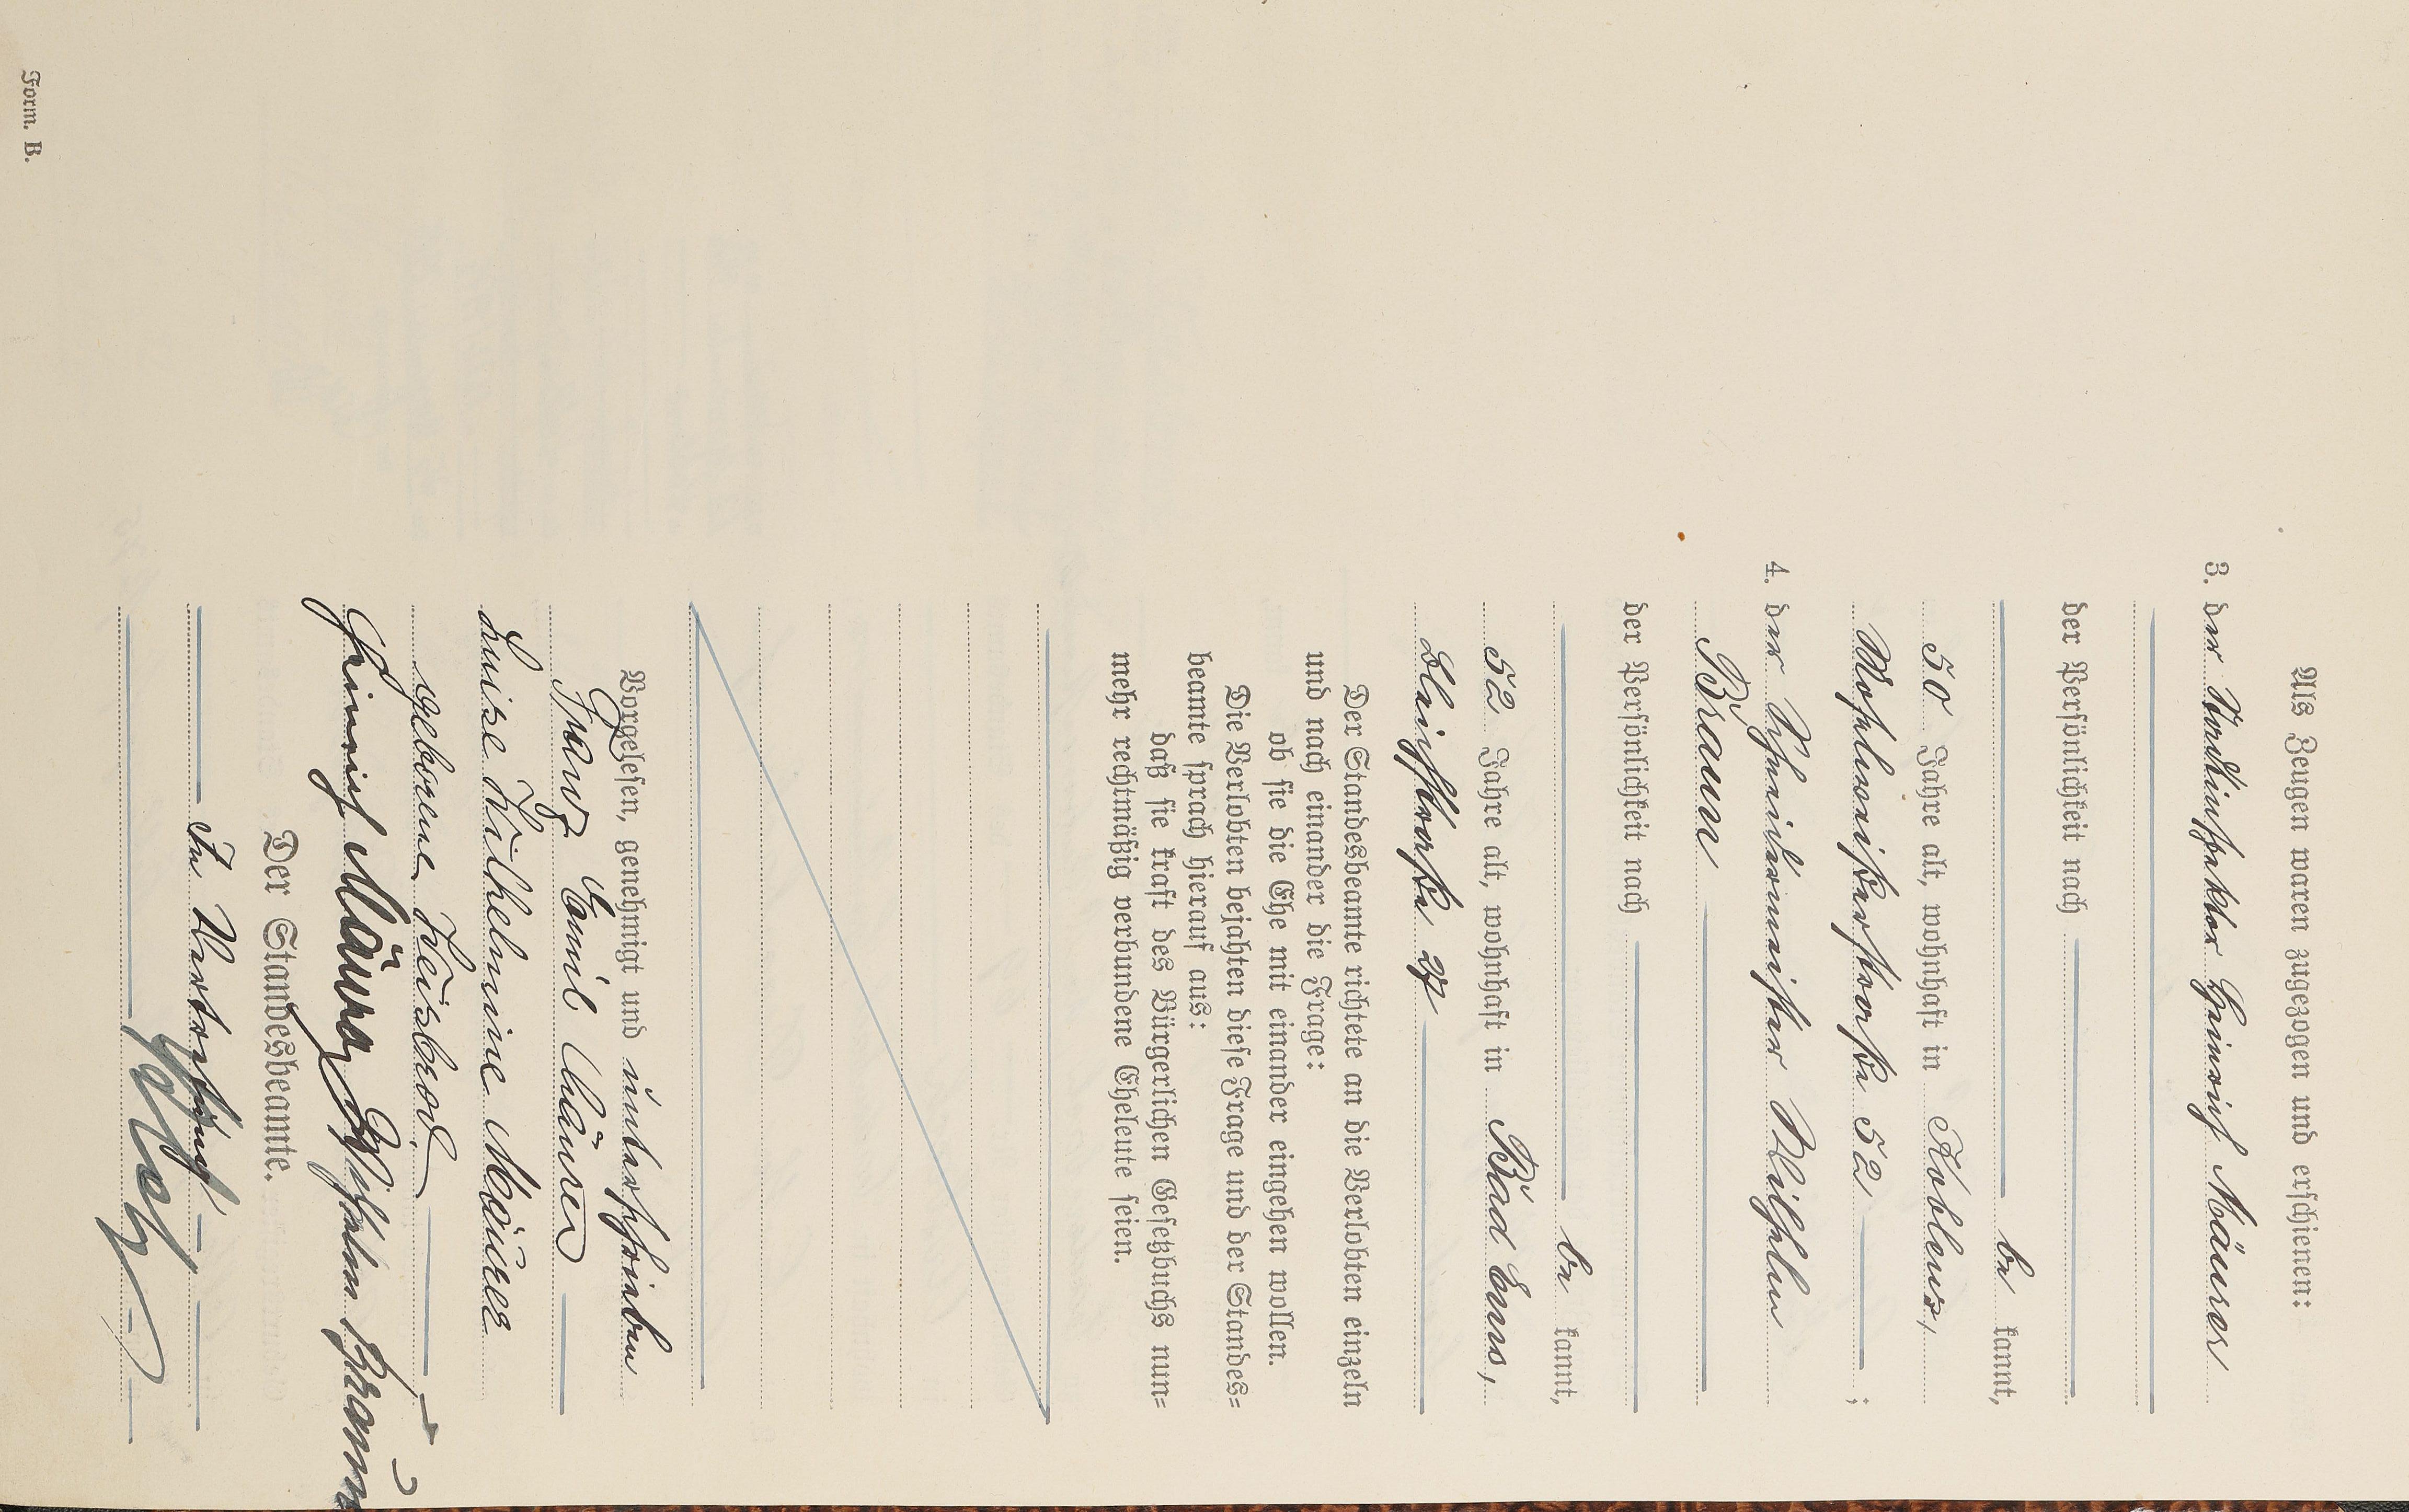 Als Zeugen waren zugezogen und erschienen:
3. der Heinrich Mäurer
der Persönlichkeit nach
be kannt,
50 Jahre alt, wohnhaft in Koblenz,
52 ;
4. der Schneidermeister Wilhelm
Braun
der Persönlichkeit nach
be kannt,
52 Jahre alt, wohnhaft in Bad Ems,
Bleichstraße 27
Der Standesbeamte richtete an die Verlobten einzeln
und nach einander die Frage:
ob sie die Ehe mit einander eingehen wollen.
Die Verlobten bejahten diese Frage und der Standes-
beamte sprach hierauf aus:
daß sie kraft des Bürgerlichen Gesetzbuchs nun-
mehr rechtmäßig verbundene Eheleute seien.
Vorgelesen, genehmigt und unterschrieben
Franz Emil Mäurer
Luise Wilhelmine Mäurer
geborene Weisbrod
Heinrich Mäurer, Wilhelm Braun
Der Standesbeamte.
In Vertretung
Form. B.